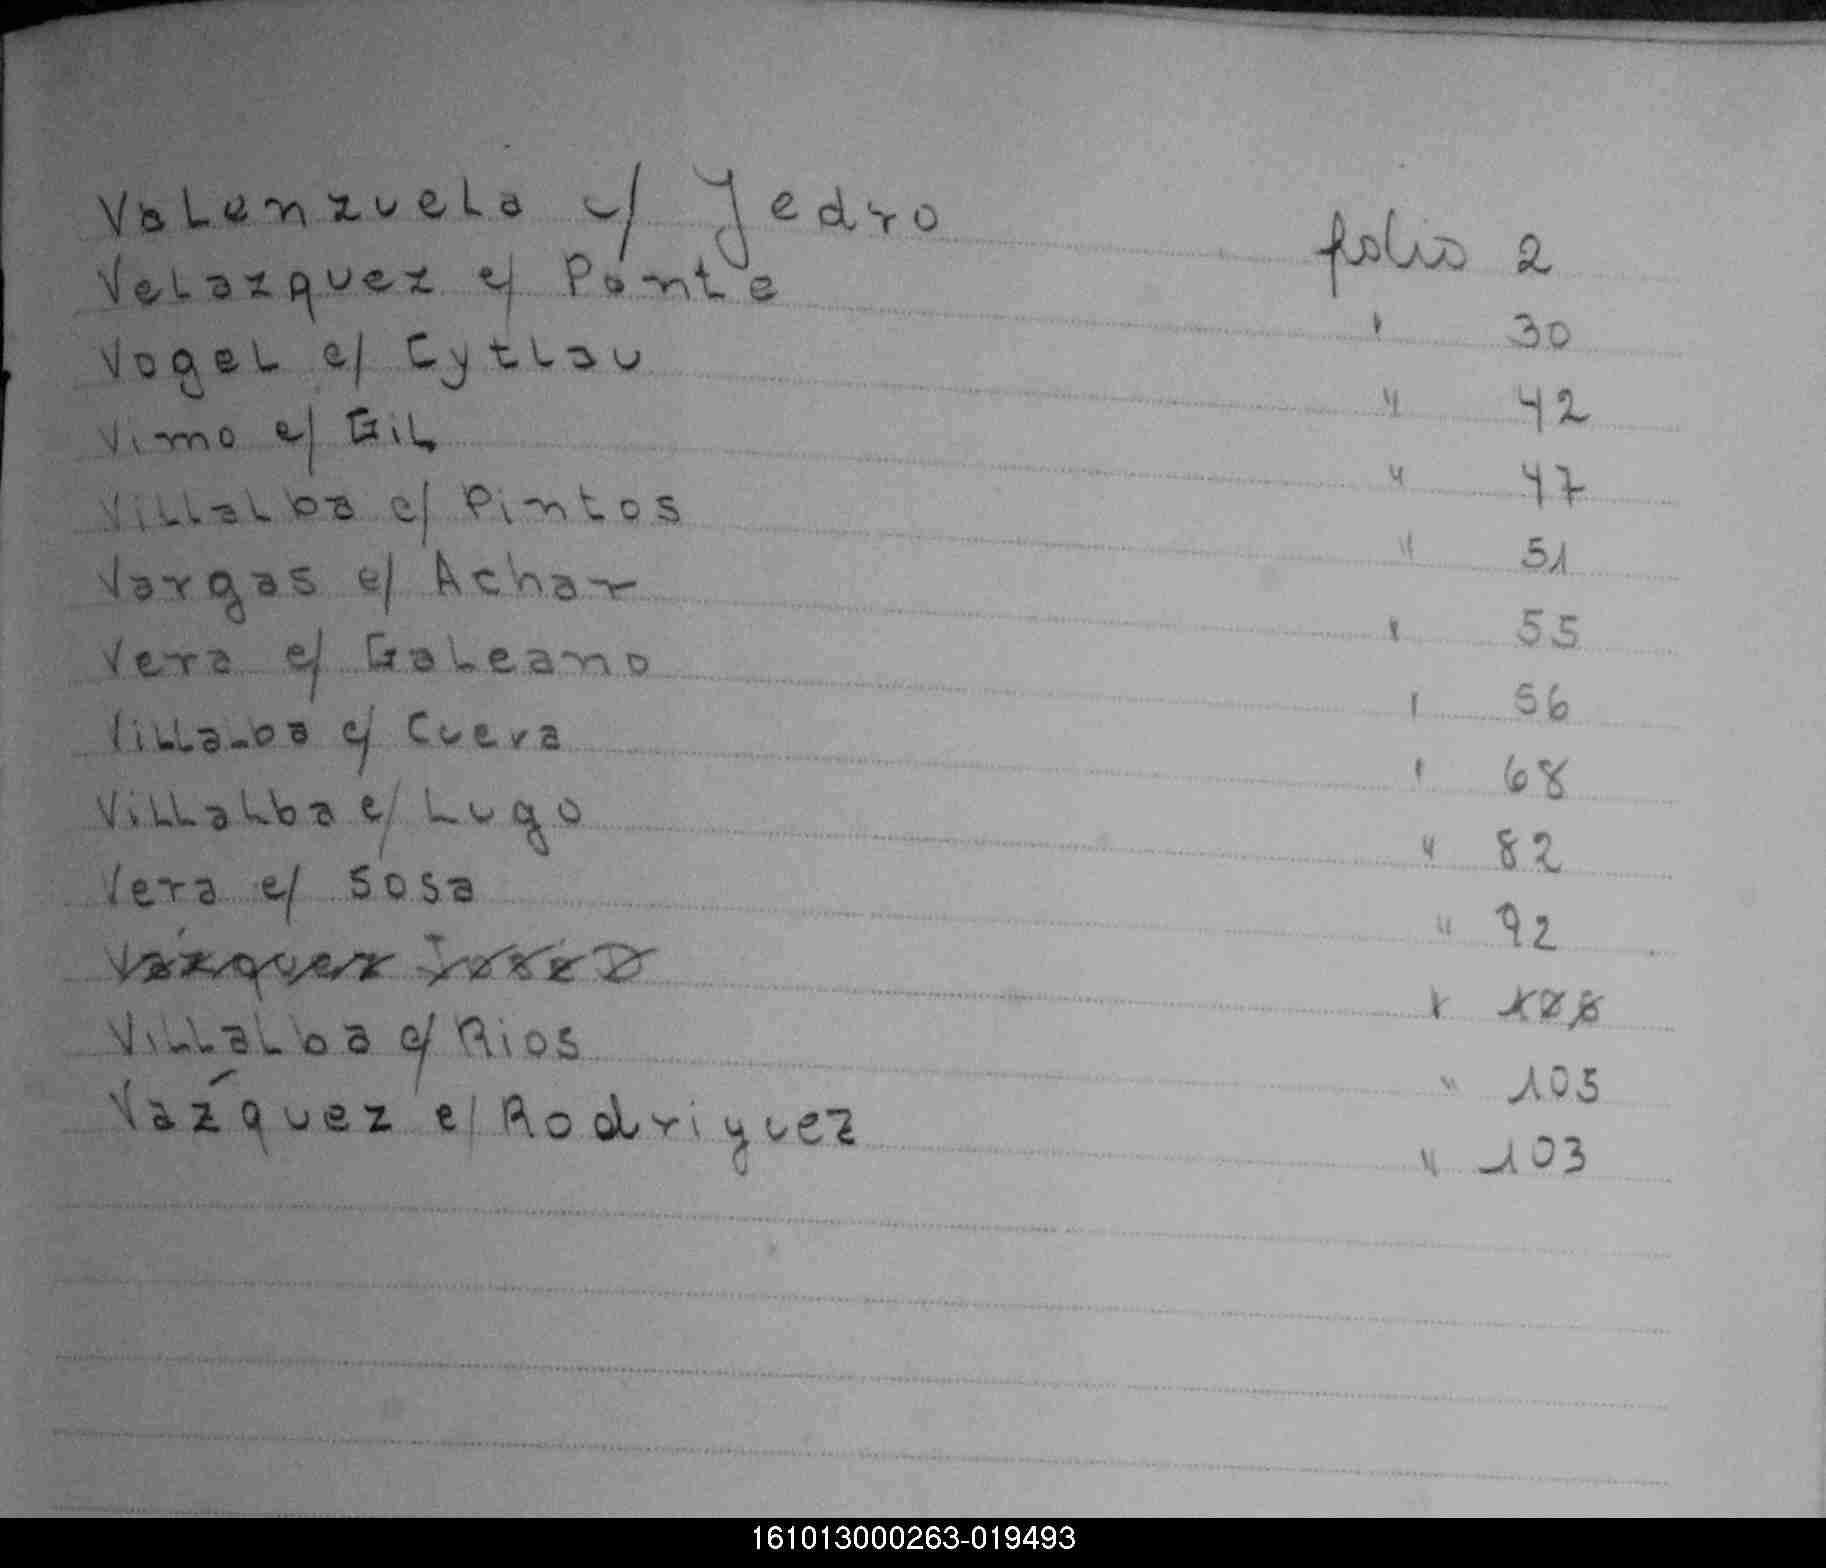 Valenzuela c/ Yedro folio 2
Velazquez c/ Ponte " 30
Vogel c/ Cytlau " 42
Vimo c/ Gil " 47
Villalba c/ Pintos " 51
Vargas c/ Achar " 55
Vera c/ Galeano " 56
Villalba c/ Cueva " 68
Villalba c/ Lugo " 82
Vera c/ Sosa " 92
Vázquez
Villalba c/ Rios " 105
Vázquez c/ Rodriguez " 103
161013000263-019493